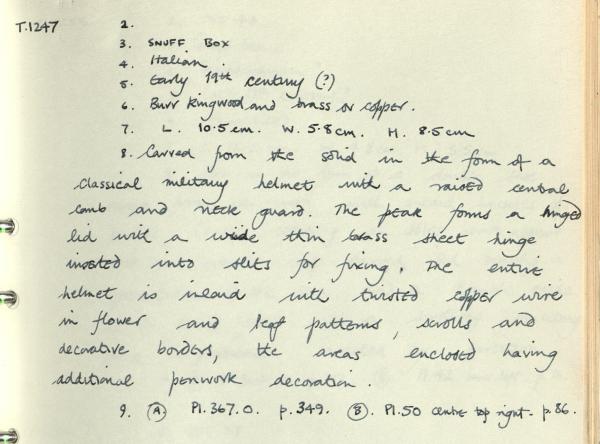 T.1247 2.
3. SNUFF BOX
4. Italian.
5. Early 19th century (?)
6. Burr Kingwood and brass or copper.
7. L. 10.5cm. W. 5.8cm. H. 8.5cm
8. Carved from the solid in the form of a
classical military helmet with a raised central
comb and neck guard. The peak forms a hinged
lid with a wide thin brass sheet hinge
inserted into slits for fixing. The entire
helmet is inlaid with twisted copper wire
in flower and leaf patterns, scrolls and
decorative borders, the areas enclosed having
additional penwork decoration.
9. (A) Pl. 367.O. p.349. (B). Pl.50 centre top right. p.86.